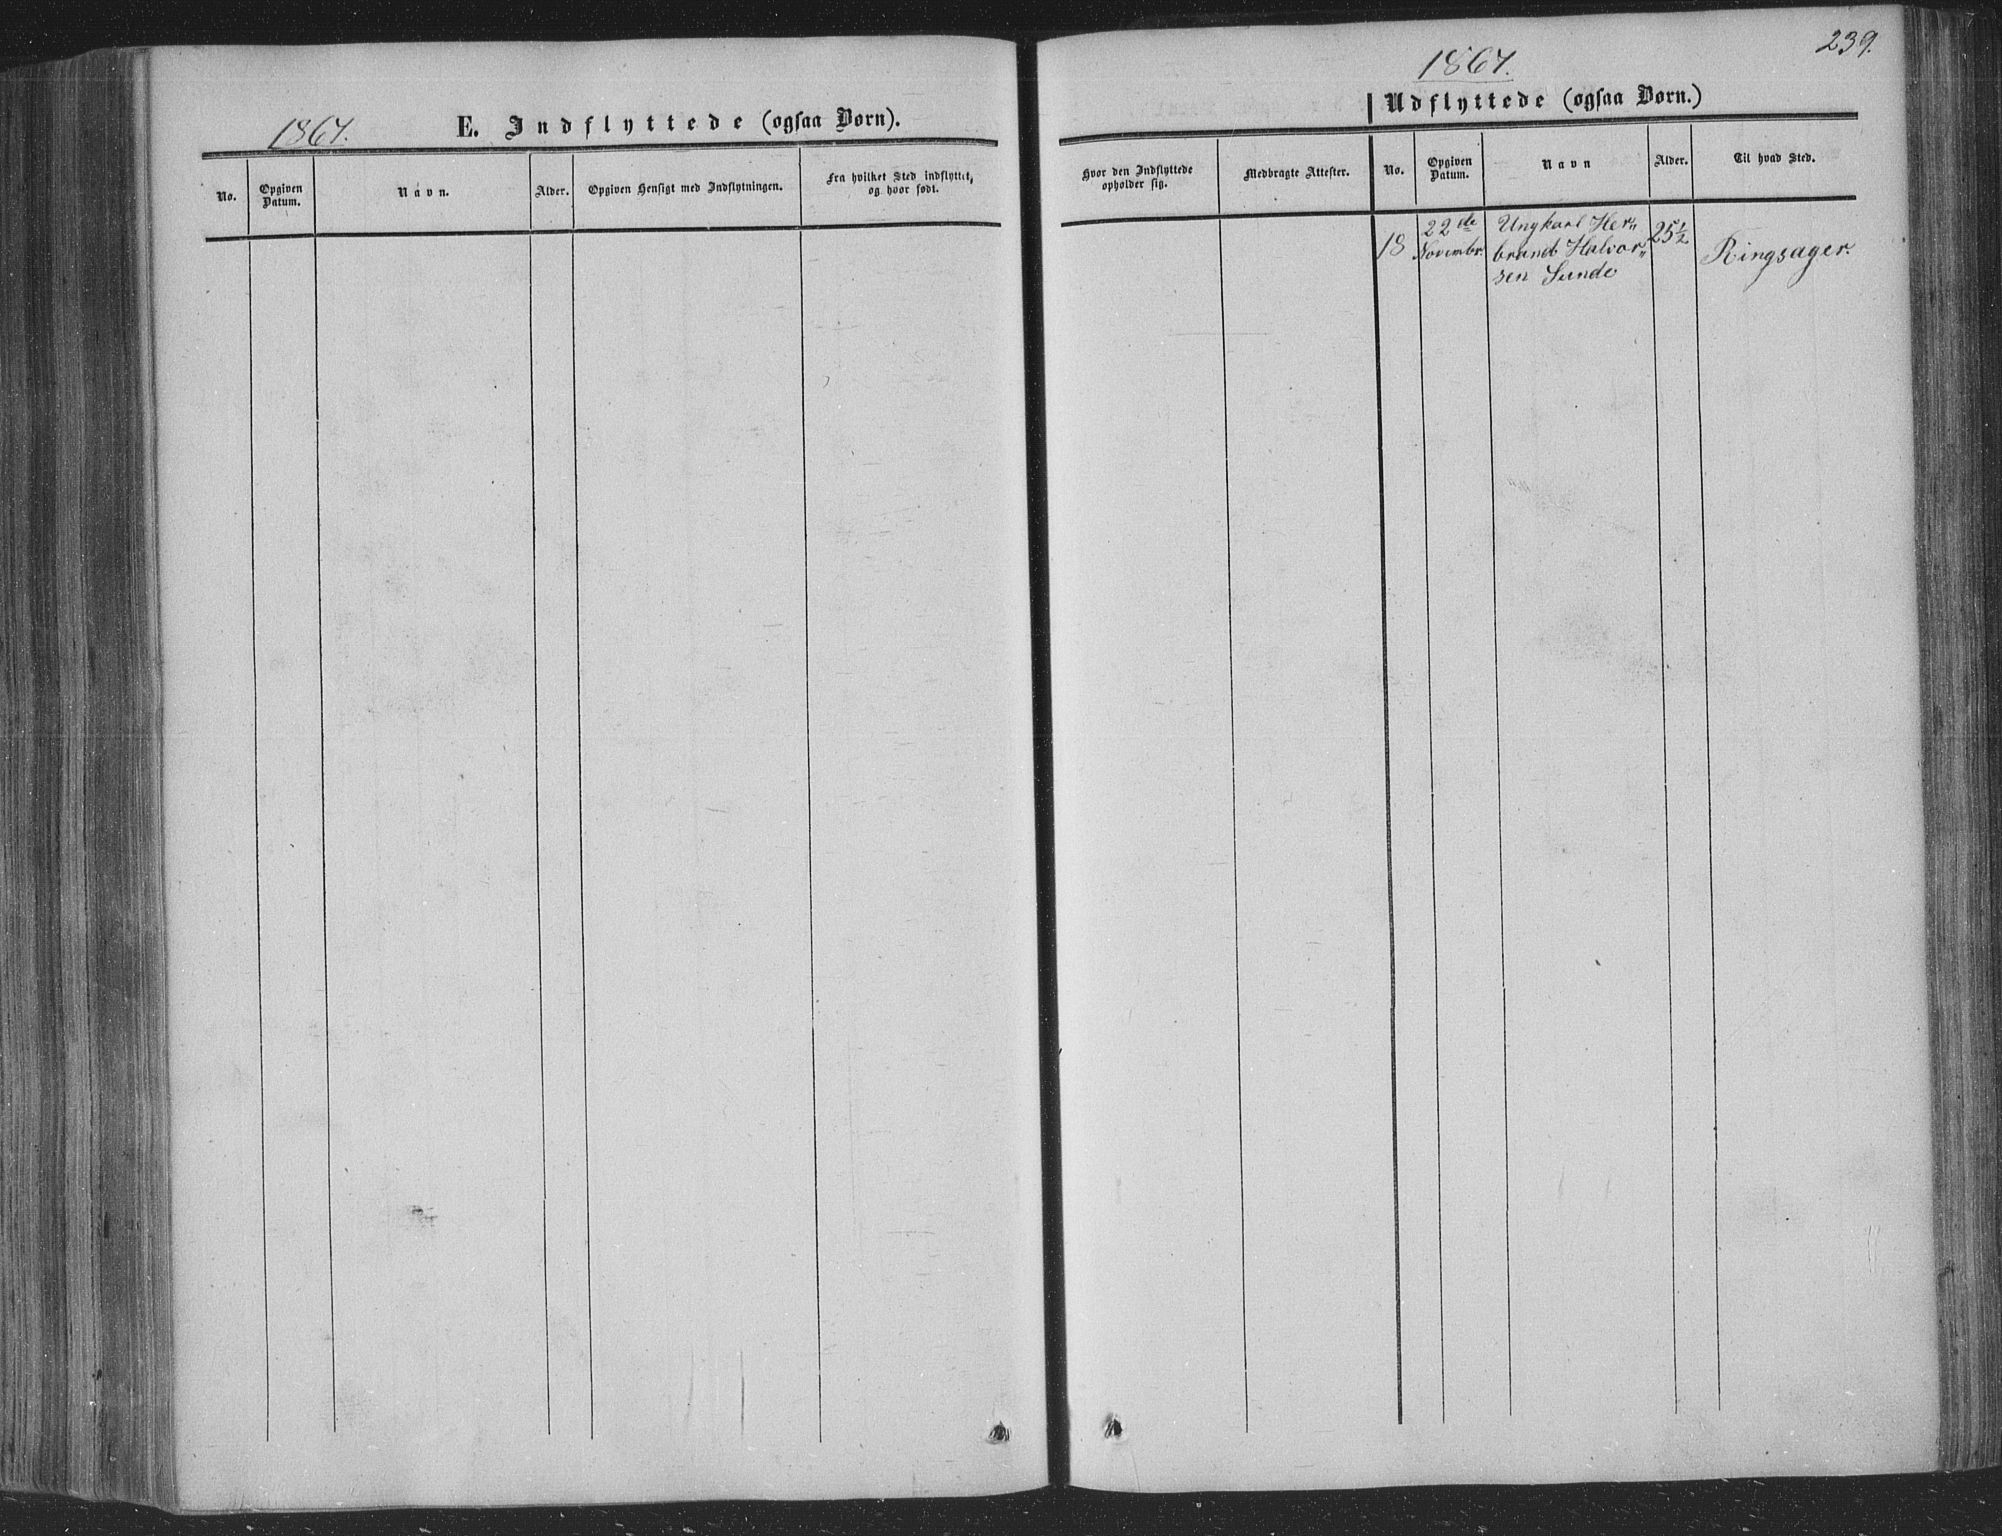 1867.
E. Indflyttede (ogsaa Børn).
No.
Opgiven
Datum.
Navn.
Alder.
Opgiven Hensigt med Indflytningen.
Fra hvilket Sted indflyttet,
og hvor født.
239.
1867.
Udflyttede (ogsaa Børn.)
Hvor den Indflyttede
opholder sig.
Medbragte Attester.
No.
Opgiven
Datum.
Navn
Alder.
Til hvad Sted.
18
22de
Novembr.
Ungkarl Her„
brand Halvor„
sen Sunde
25½
Ringsager.